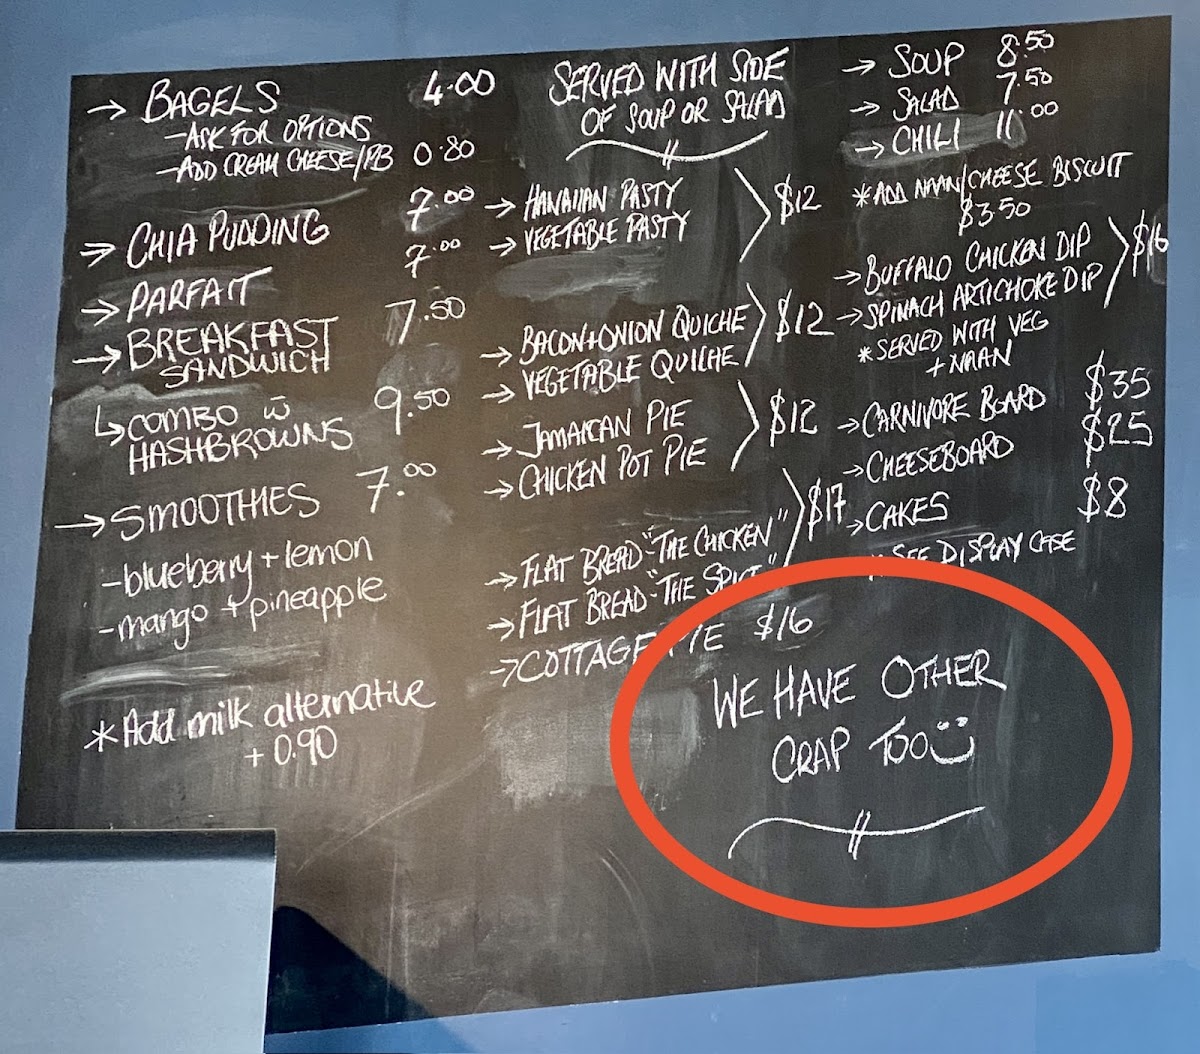 → BAGELS 4.00
- ASK FOR OPTIONS
- ADD CREAM CHEESE/PB 0.80
→ CHIA PUDDING 7.00
→ PARFAIT 7.00
→ BREAKFAST SANDWICH 7.50
↳ COMBO W HASHBROWNS 9.50
→ SMOOTHIES 7.00
- blueberry + lemon
- mango + pineapple
* Add milk alternative
+ 0.90
SERVED WITH SIDE
OF SOUP OR SALAD
→ HAWAIIAN PASTY
→ VEGETABLE PASTY
$12
→ BACON+ONION QUICHE
→ VEGETABLE QUICHE
$12
→ JAMAICAN PIE
→ CHICKEN POT PIE
$12
→ FLAT BREAD - "THE CHICKEN"
→ FLAT BREAD - "THE SPICY"
$17
→ COTTAGE PIE $16
→ SOUP 8.50
→ SALAD 7.50
→ CHILI 11.00
* ADD NAAN/CHEESE BISCUIT
$3.50
→ BUFFALO CHICKEN DIP
→ SPINACH ARTICHOKE DIP
$16
* SERVED WITH VEG
+ NAAN
→ CARNIVORE BOARD $35
→ CHEESEBOARD $25
→ CAKES $8
* SEE DISPLAY CASE
WE HAVE OTHER
CRAP TOO